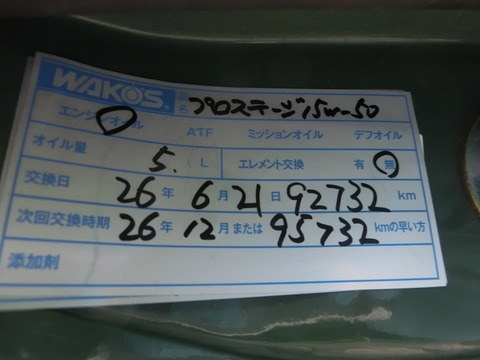 WAKO'S® 名 プロステージ15W-50
エンジンオイル ATF ミッションオイル デフオイル
オイル量 5. L エレメント交換 有 無
交換日 26 年 6 月 21 日 92732 km
次回交換時期 26 年 12 月 または 95732 kmの早い方
添加剤